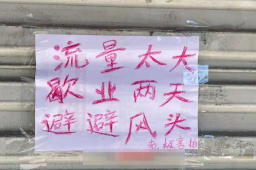 流量太大
歇业两天
避避风头